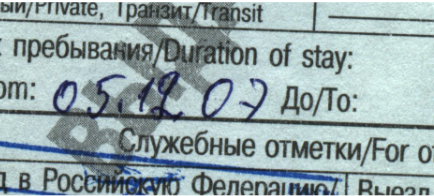 ый/Private, Транзит/Transit
пребывания/Duration of stay:
om: 05.12.07 До/To:
Служебные отметки/For o
д в Российскую Федерацию/ Выезд